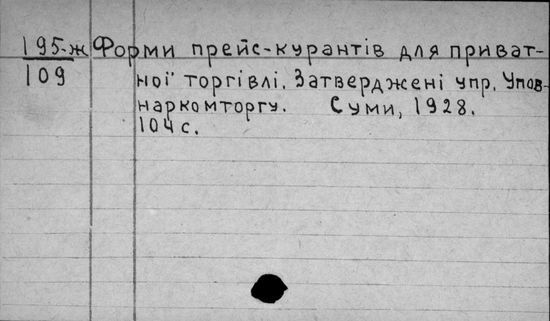 195-ж Форми прейс-курантів для приват-
109 ної торгівлі. Затверджені упр. Упов-
наркомторгу. Суми, 1928.
104 с.